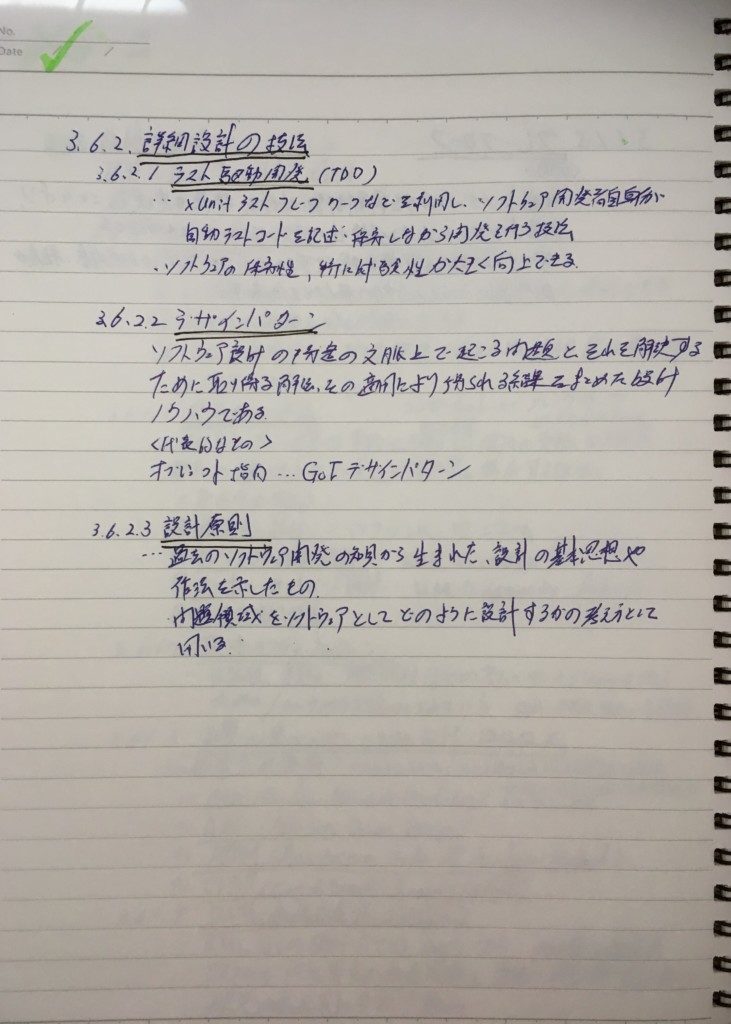 No.
Date
3.6.2. 詳細設計の技法
3.6.2.1 テスト駆動開発 (TDD)
… xUnitテストフレームワークなどを利用し、ソフトウェア開発者自身が
自動テストコードを記述・保守しながら開発を行う技法
・ソフトウェアの保守性、特に試験性が大きく向上できる.
3.6.2.2 デザインパターン
ソフトウェア設計の特定の文脈上で起こる問題と、それを解決する
ために取り得る解法、その適用により得られる結果をまとめた設計
ノウハウである.
<代表的なもの>
オブジェクト指向 … GoF デザインパターン
3.6.2.3 設計原則
… 過去のソフトウェア開発の知見から生まれた、設計の基本思想や
作法を示したもの.
問題領域をソフトウェアとしてどのように設計するかの考え方として
用いる.